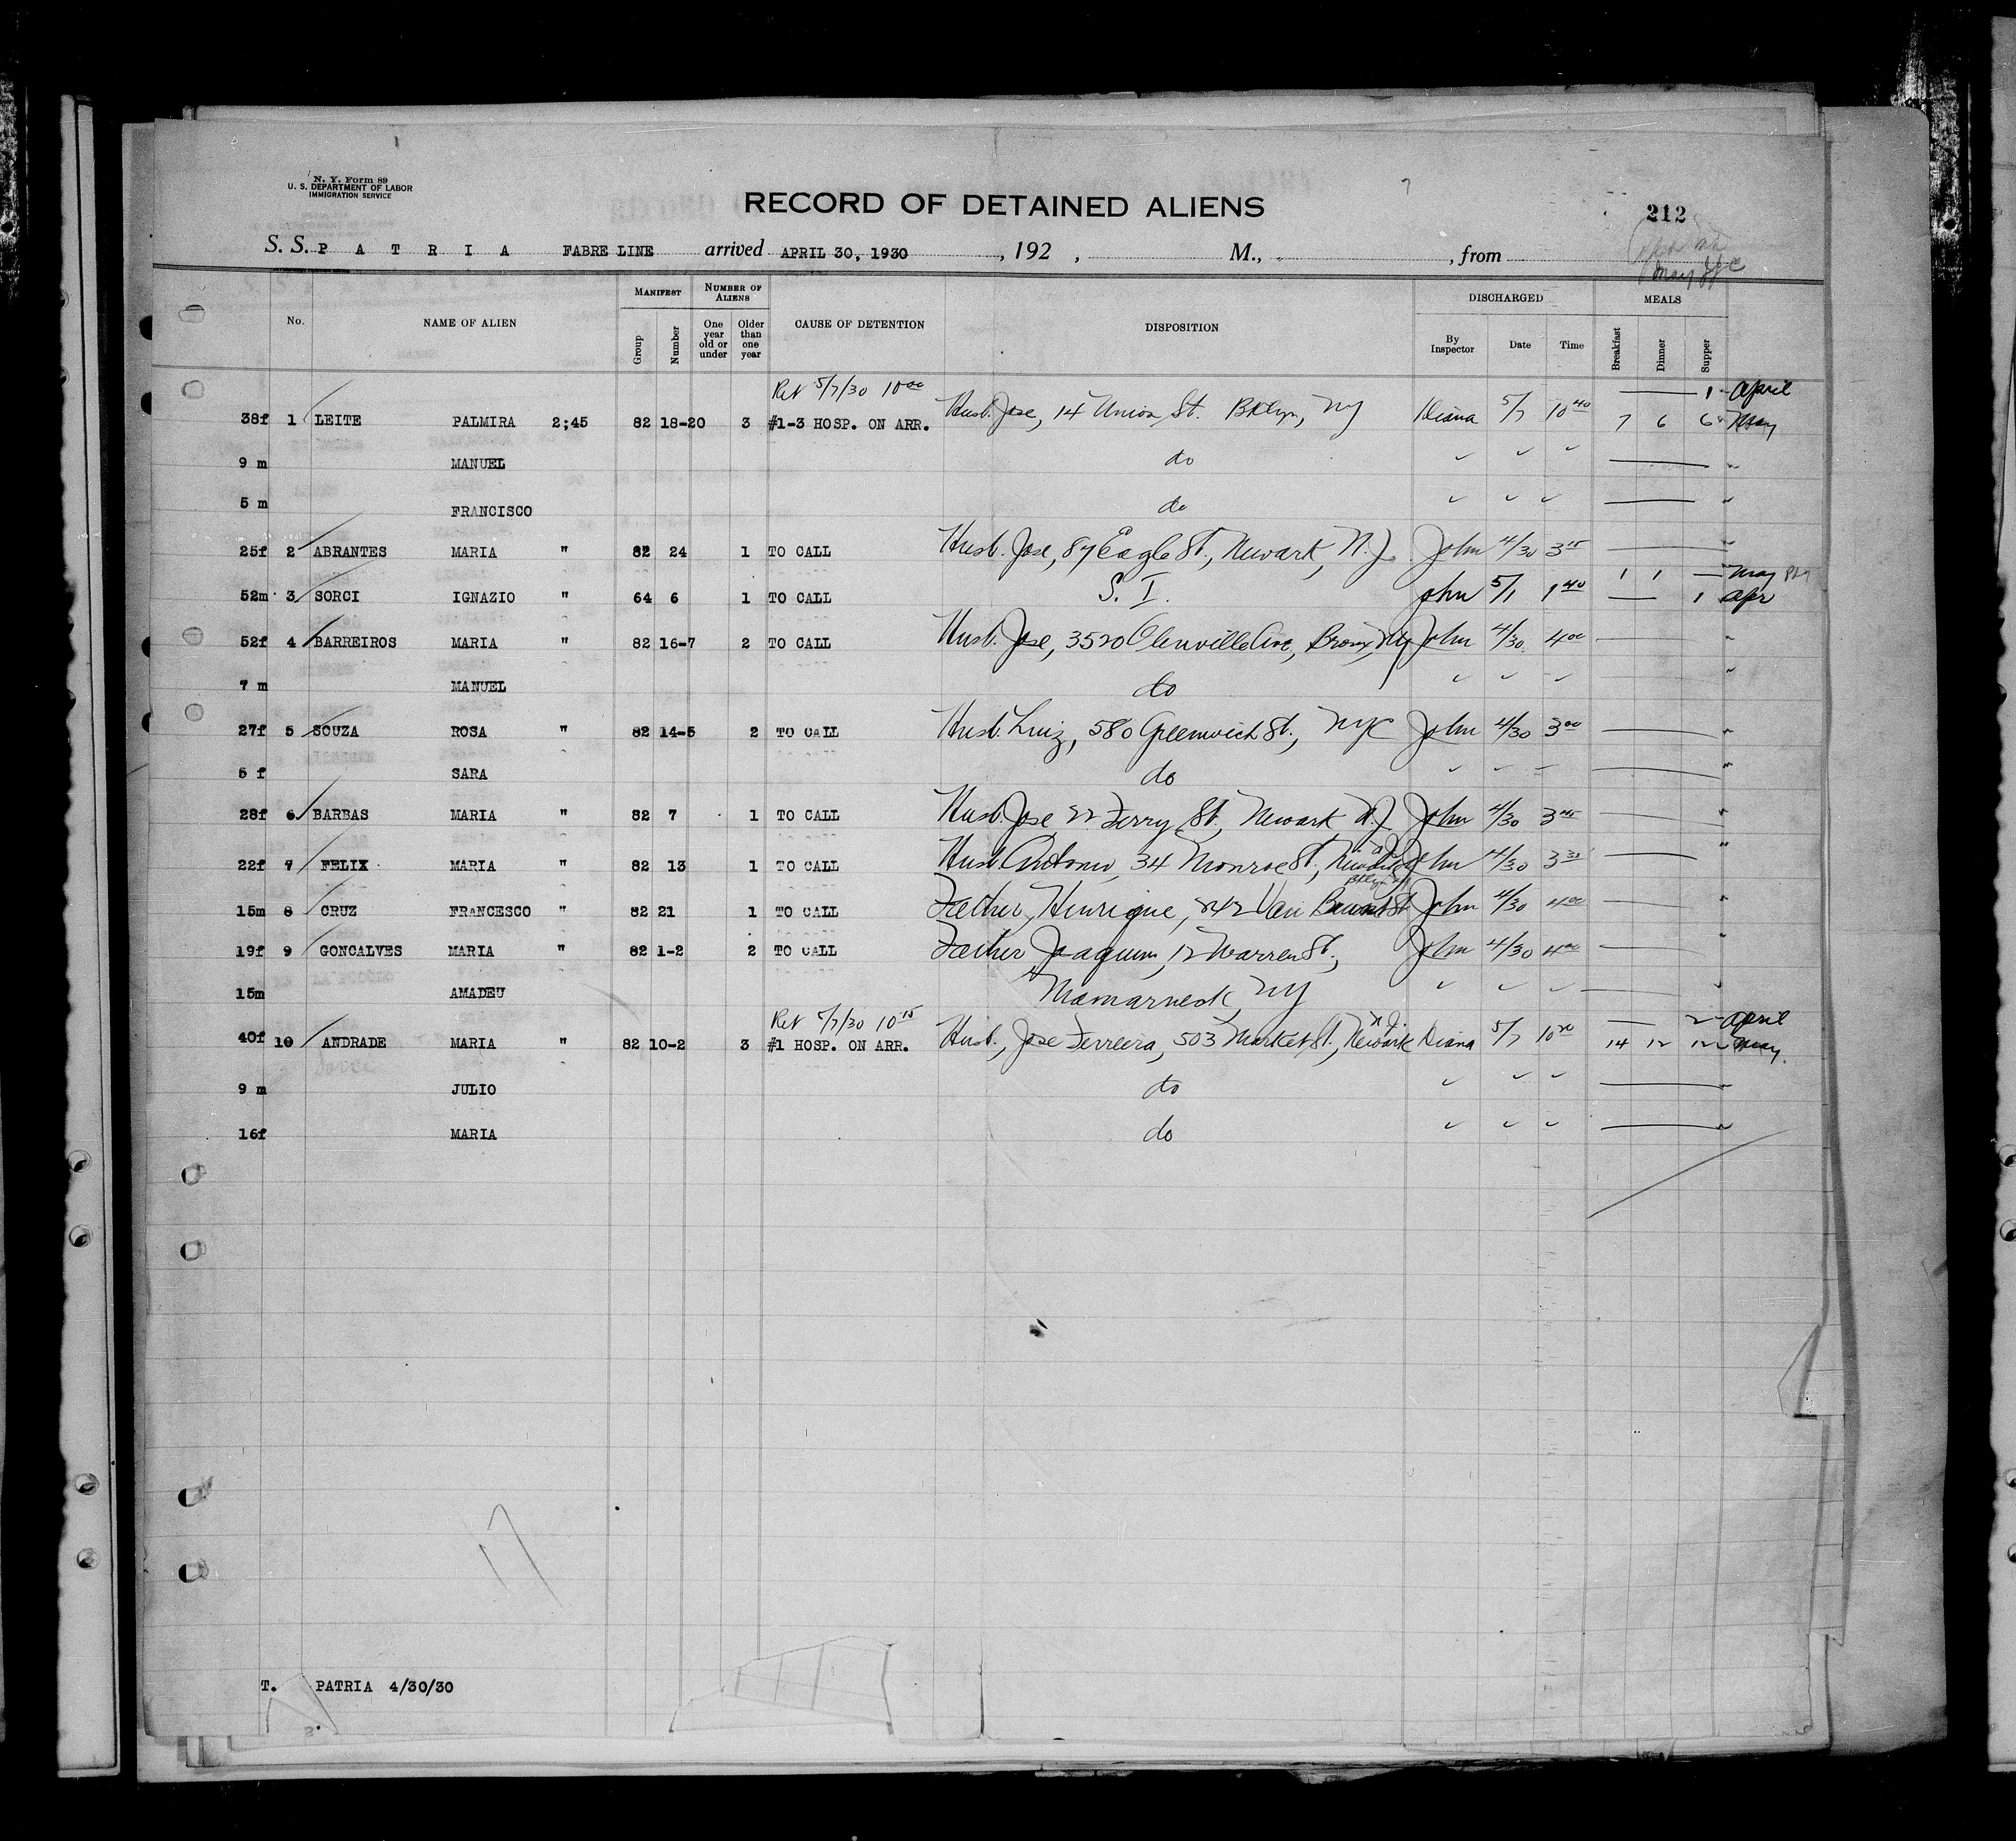 N. Y. Form 89
U. S. DEPARTMENT OF LABOR
IMMIGRATION SERVICE
RECORD OF DETAINED ALIENS
212
S. S. P A T R I A FABRE LINE arrived APRIL 30, 1930 , 192 , M., , from
May
MANIFEST NUMBER OF ALIENS DISCHARGED MEALS
No. NAME OF ALIEN Group Number One year old or under Older than one year CAUSE OF DETENTION DISPOSITION By Inspector Date Time Breakfast Dinner Supper
Ret 5/7/30 10 00 1 April
38f 1 LEITE PALMIRA 2;45 82 18-20 3 #1-3 HOSP. ON ARR. Husb. Jose, 14 Union St. Bklyn, NY Diana 5/7 10 40 7 6 6 May
9 m MANUEL do ✓ ✓ ✓ "
5 m FRANCISCO do ✓ ✓ ✓ "
25f 2 ABRANTES MARIA " 82 24 1 TO CALL Husb. Jose, 87 Eagle St., Newark, N.J. John 4/30 3 15 "
1 1 — May
52m 3 SORCI IGNAZIO " 64 6 1 TO CALL S. I. John 5/1 1 40 — 1 Apr
52f 4 BARREIROS MARIA " 82 16-7 2 TO CALL Husb. Jose, 3520 Olenville Ave, Bronx, NY John 4/30 4 00 "
7 m MANUEL do ✓ ✓ ✓ "
27f 5 SOUZA ROSA " 82 14-5 2 TO CALL Husb. Luiz, 580 Greenwich St., NYC John 4/30 3 00 "
5 f SARA do "
28f 6 BARBAS MARIA " 82 7 1 TO CALL Husb. Jose 22 Ferry St., Newark NJ John 4/30 3 45 "
22f 7 FELIX MARIA " 82 13 1 TO CALL Husb. Antonio, 34 Monroe St., Newark John 4/30 3 30 "
Bklyn NY
15m 8 CRUZ FRANCESCO " 82 21 1 TO CALL Father, Henrique, 242 Van Brunt St John 4/30 4 00 "
19f 9 GONCALVES MARIA " 82 1-2 2 TO CALL Father Joaquim, 12 Warren St., John 4/30 4 00 "
15m AMADEU Mamarneck, NY ✓ ✓ ✓ "
Ret 5/7/30 10 15 N.J. — 2 April
40f 10 ANDRADE MARIA " 82 10-2 3 #1 HOSP. ON ARR. Husb., Jose Ferreira, 503 Market St., Newark Diana 5/7 10 20 14 12 12 May
9 m JULIO do ✓ ✓ ✓ "
16f MARIA do ✓ ✓ ✓ "
17
T. PATRIA 4/30/30